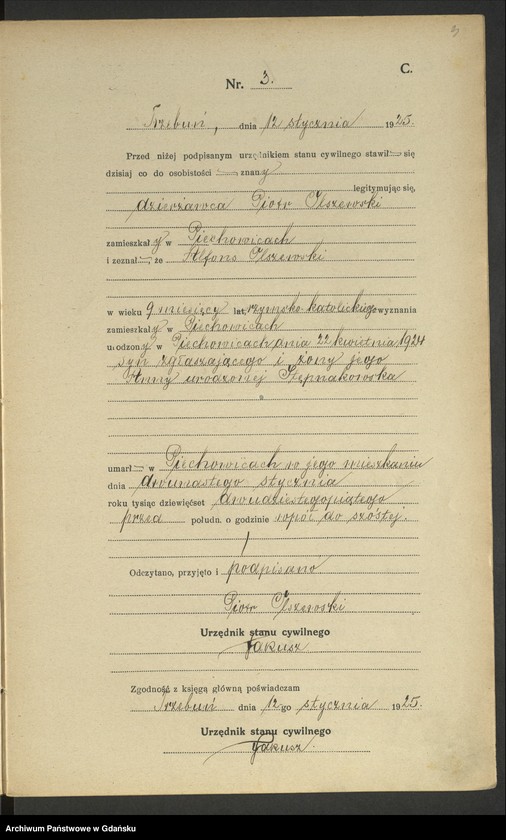 3
C.
Nr. 3.
Trzebuń, dnia 12 stycznia 1925.
Przed niżej podpisanym urzędnikiem stanu cywilnego stawił się
dzisiaj co do osobistości znany
legitymując się,
dzierżawca Piotr Olszewski
zamieszkały w Piechowicach
i zeznał, że Alfons Olszewski
w wieku 9 miesięcy lat, rzymsko katolickiego wyznania
zamieszkały w Piechowicach
urodzony w Piechowicach dnia 22 kwietnia 1924
syn zgłaszającego i żony jego
Anny urodzonej
umarł w Piechowicach w jego mieszkaniu
dnia dwunastego stycznia
roku tysiąc dziewięćset dwudziestegopiątego
przed połudn. o godzinie wpół do szóstej.
Odczytano, przyjęto i podpisano
Piotr Olszewski
Urzędnik stanu cywilnego
Jakusz
Zgodność z księgą główną poświadczam
Trzebuń dnia 12 go stycznia 1925.
Urzędnik stanu cywilnego
Jakusz.
Archiwum Państwowe w Gdańsku